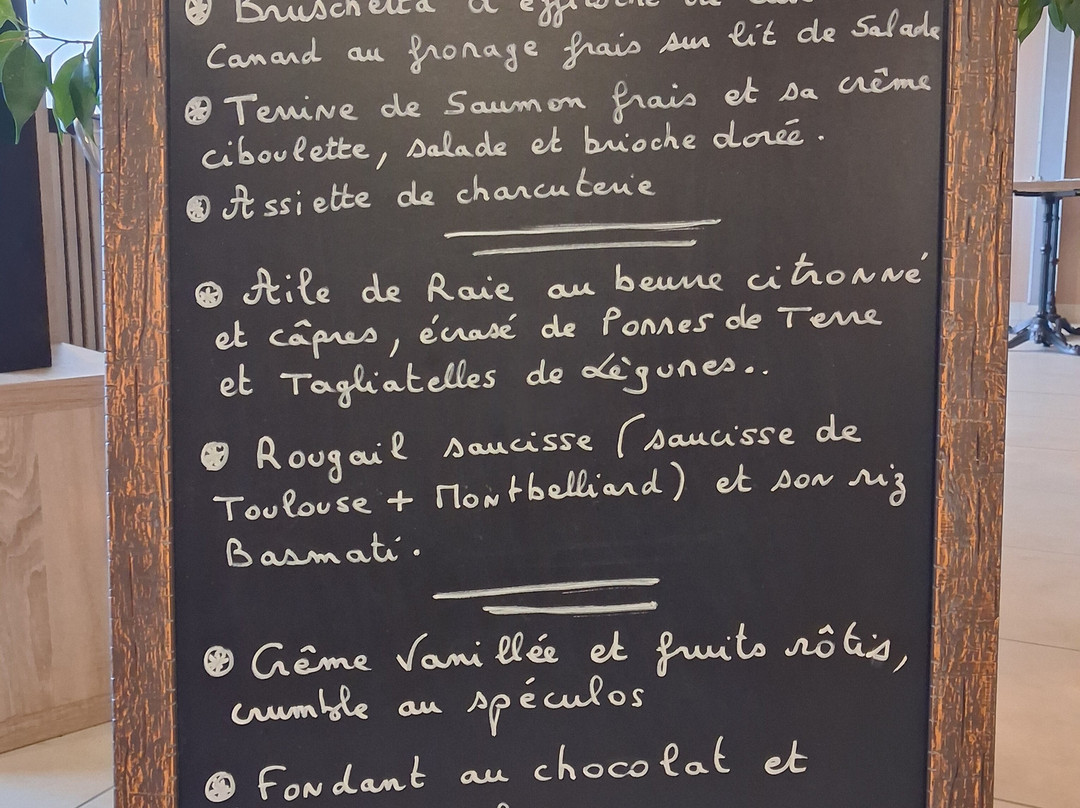 Bruschetta à effiloché de
Canard au fromage frais sur lit de Salade
Terrine de Saumon frais et sa crême
ciboulette, salade et brioche dorée.
Assiette de charcuterie
Aile de Raie au beurre citronné
et câpres, écrasé de Pommes de Terre
et Tagliatelles de Lègumes..
Rougail saucisse (saucisse de
Toulouse + Montbelliard) et son riz
Basmati.
Crême Vanillée et fruits rôtis,
crumble au spéculos
Fondant au chocolat et